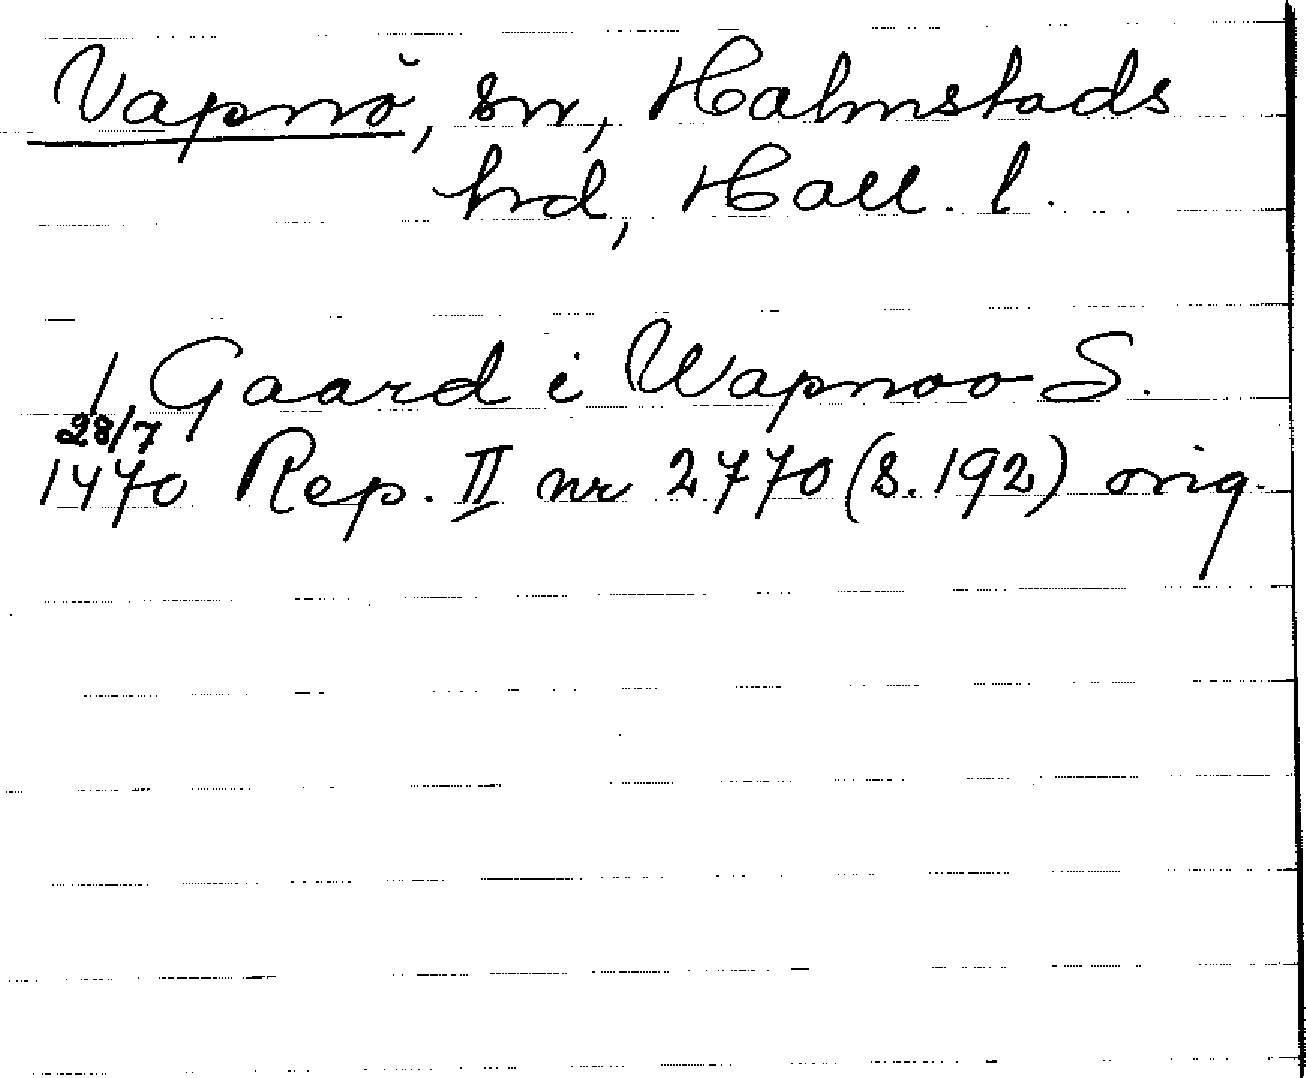 Vapnö, sn, Halmstads
hrd, Hall. l.
1 Gaard i Wapnoo S.
28/7
1470 Rep. II nr 2770 (s. 192) orig.